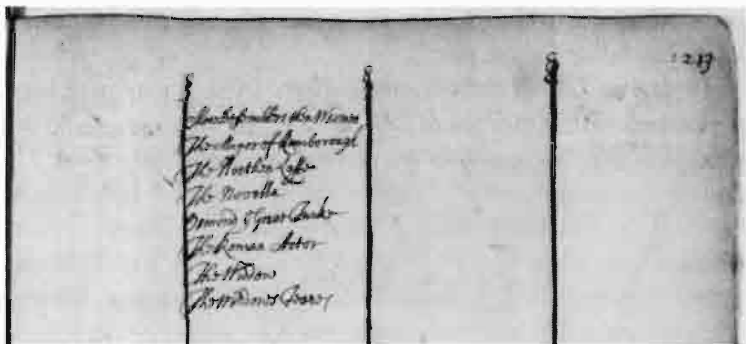 213
More Dissemblers then Women
The Mayor of Quinborough
The Northen Lasse
The Novella
Osmond ye Great Turke
The Roman Actor
The Widdow
The Widowes Teares